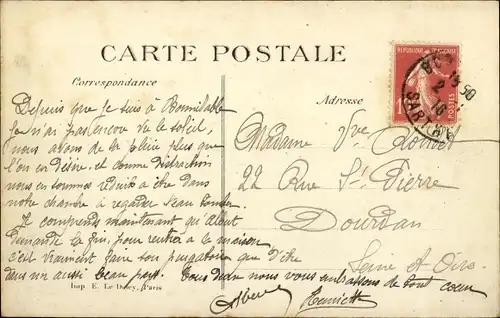 CARTE POSTALE
Correspondance
Adresse
RÉPUBLIQUE FRANÇAISE
POSTES
Depuis que je suis à Bonnétable
je n'ai pas encore vu le soleil,
nous avons de la pluie plus que
l'on en désire, et comme distraction
nous en sommes réduits à être dans
notre chambre à regarder l'eau tomber.
Je comprends maintenant qu'Albert
demande la fin, pour rentrer à la maison
c'est vraiment faire son purgatoire que d'être
dans un aussi beau pays. Tous deux nous vous embrassons de tout cœur
Albert Henriette
Madame Vve
22 Rue St Pierre
Dourdan
Seine et Oise
Imp. E. Le Deley, Paris